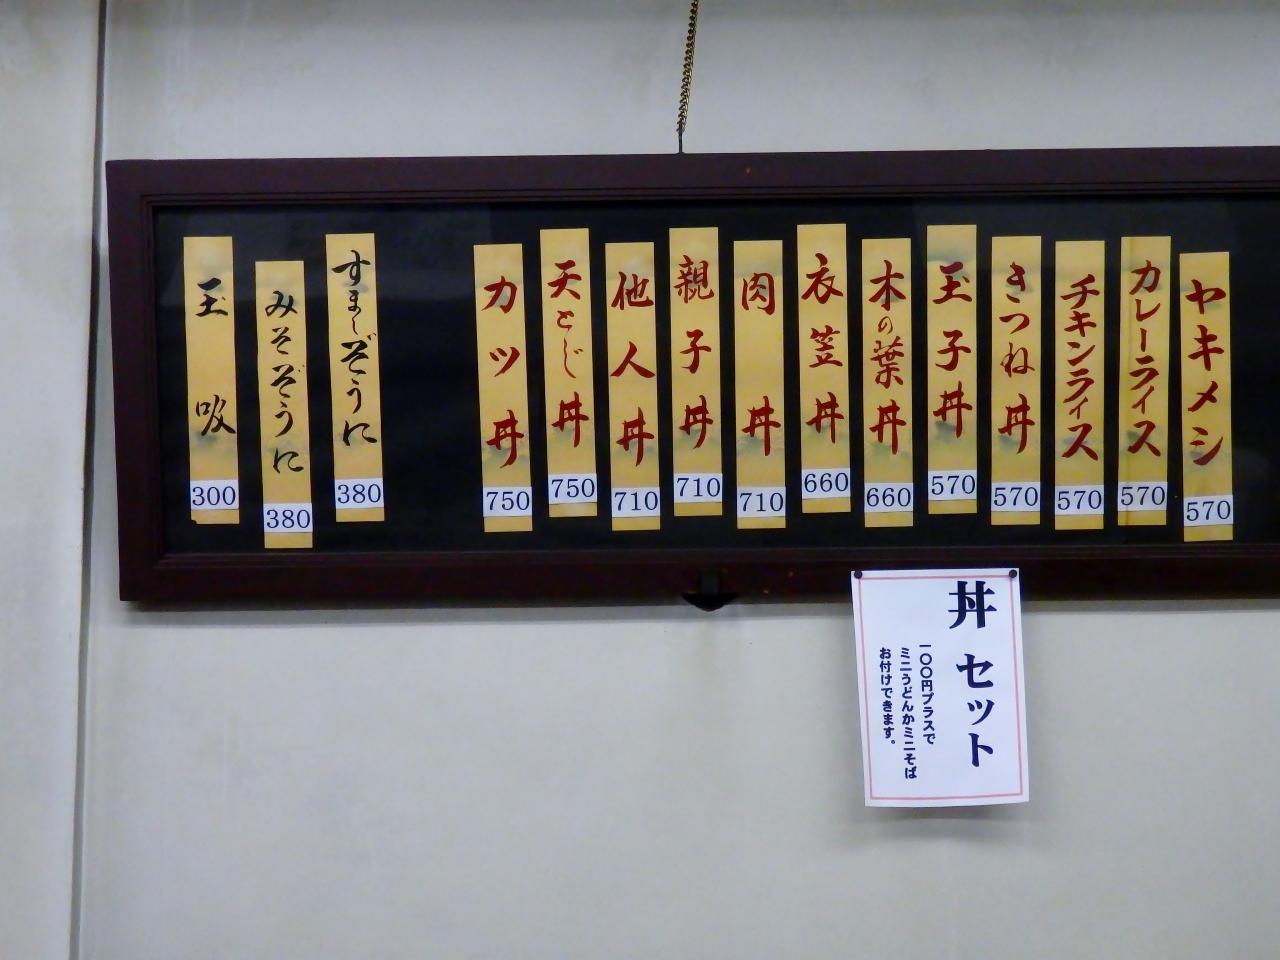 ヤキメシ
570
カレーライス
570
チキンライス
570
きつね丼
570
玉子丼
570
木の葉丼
660
衣笠丼
660
肉丼
710
親子丼
710
他人丼
710
天とじ丼
750
カツ丼
750
すましぞうに
380
みそぞうに
380
玉吸
300
丼セット
一〇〇円プラスで
ミニうどんかミニそば
お付けできます。